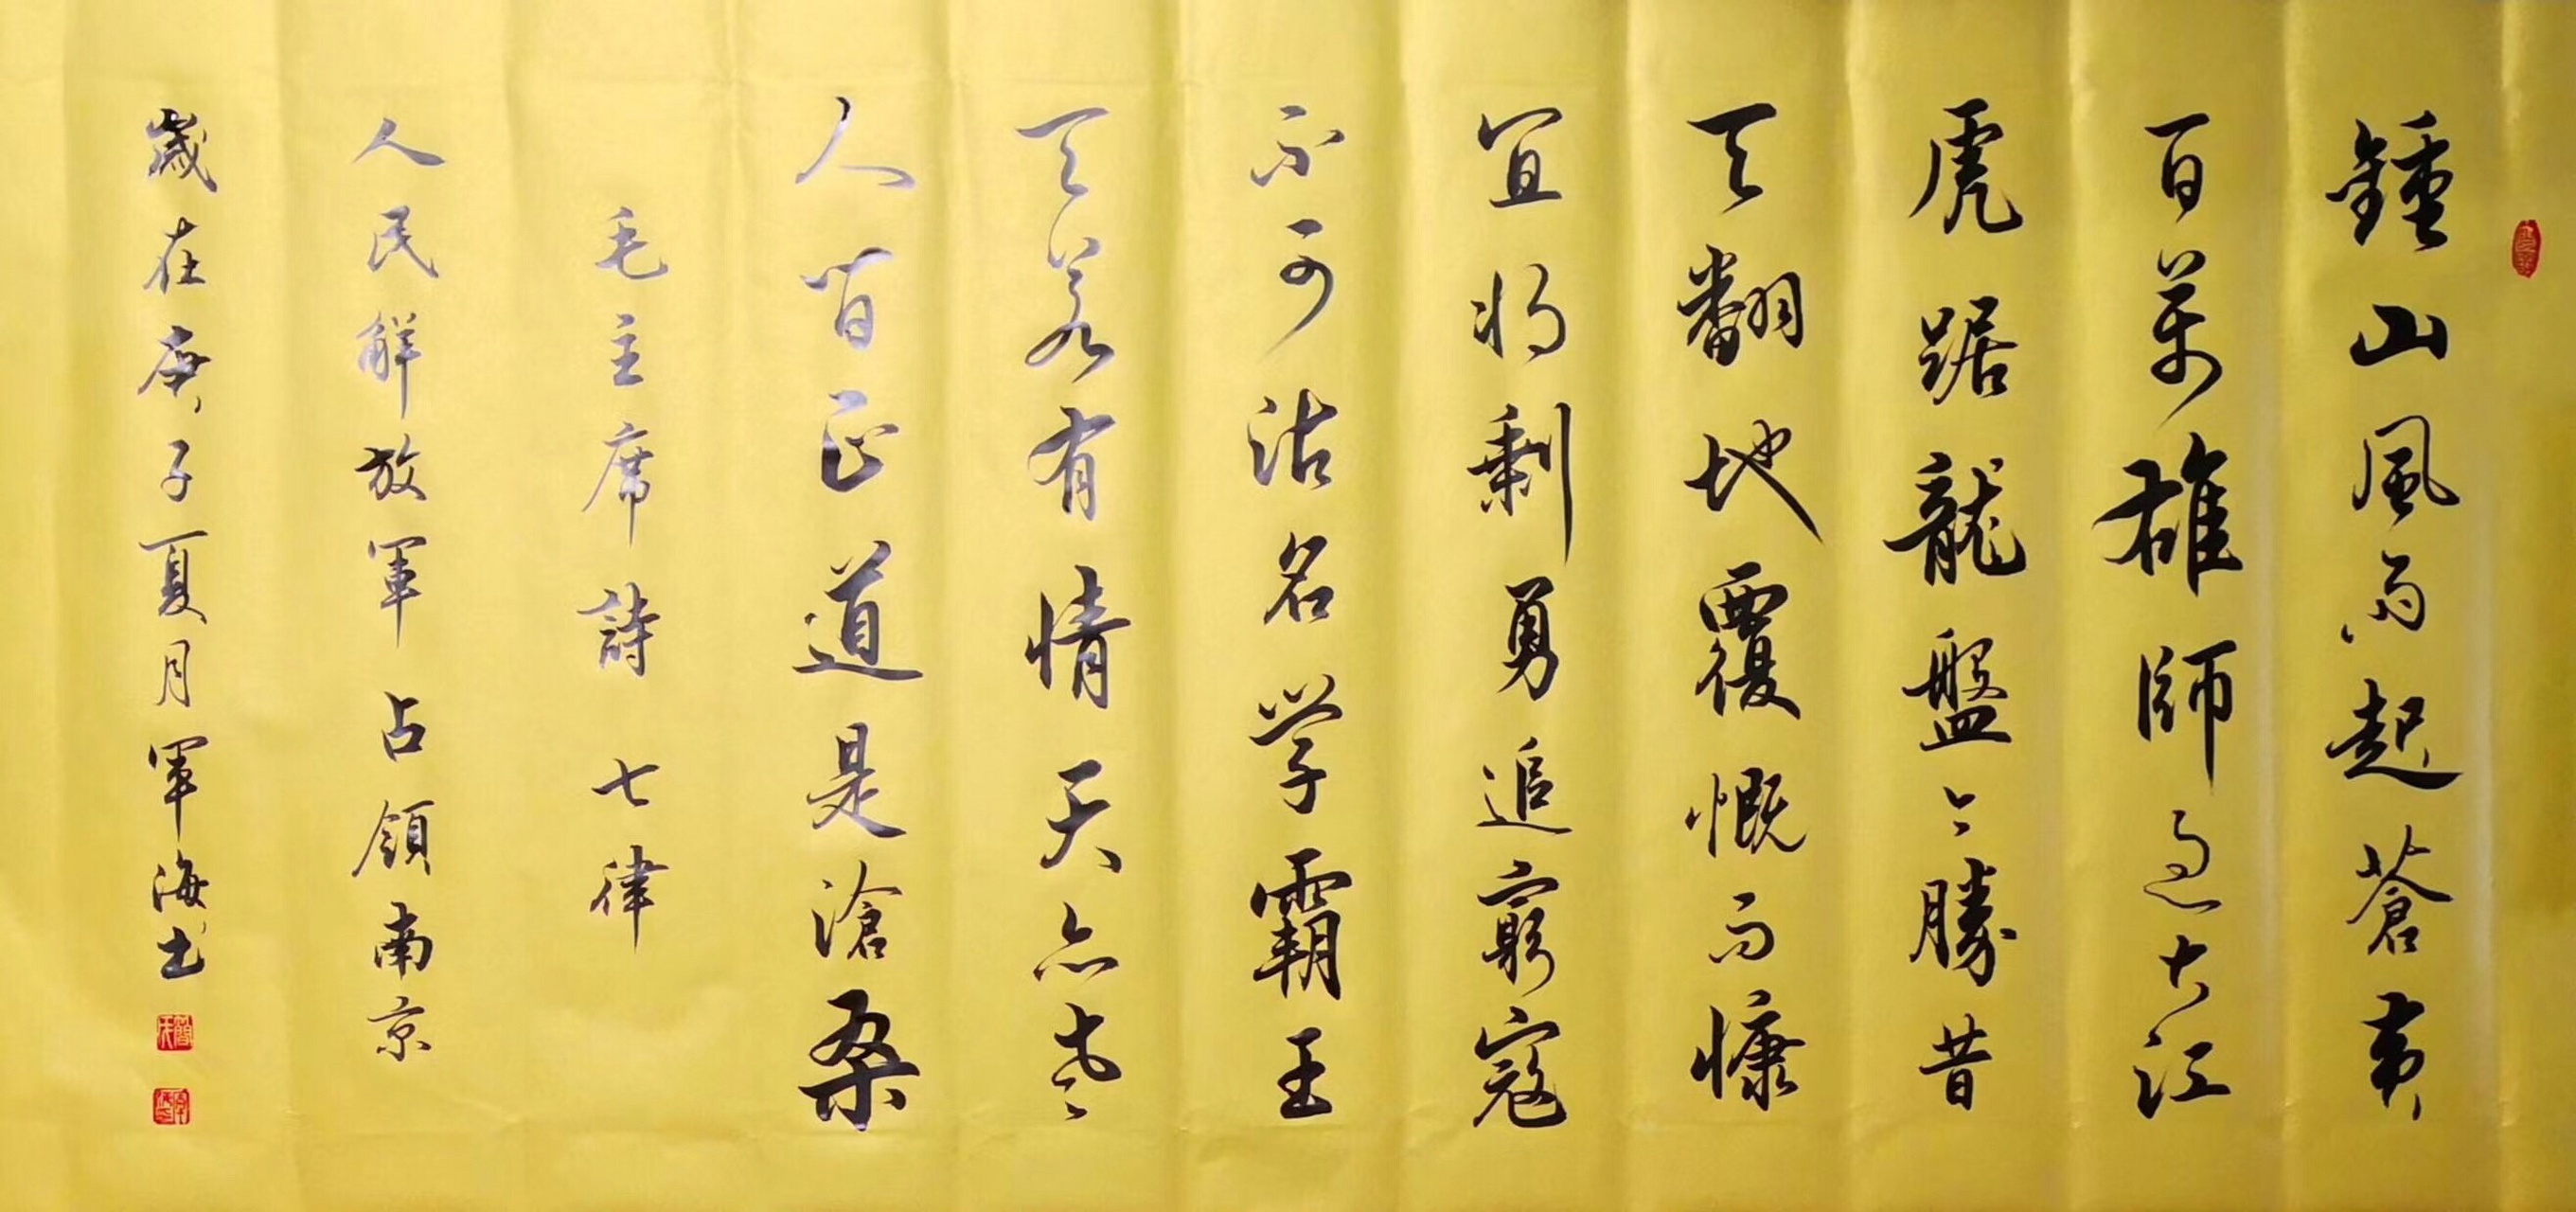 鍾山風雨起蒼黄
百萬雄師過大江
虎踞龍盤今勝昔
天翻地覆慨而慷
宜将剩勇追窮寇
不可沽名学霸王
天若有情天亦老
人间正道是滄桑
毛主席詩 七律
人民解放軍占領南京
歲在庚子夏月軍海书